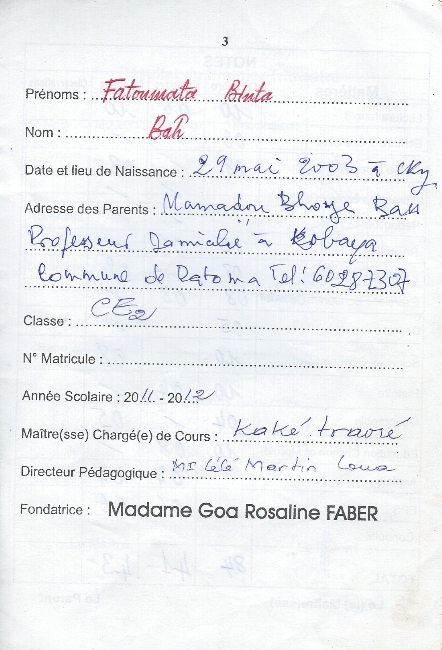 3
Prénoms : Fatoumata Binta
Nom : Bah
Date et lieu de Naissance : 29 mai 2003 à cky
Adresse des Parents : Mamadou Bhoye Bah
Professeur à Kobaya
Commune de Ratoma Tel: 60287307
Classe : CE2
N° Matricule :
Année Scolaire : 2011 - 2012
Maître(sse) Chargé(e) de Cours : Kaké traoré
Directeur Pédagogique : Mr Cécé Martin Loua
Fondatrice : Madame Goa Rosaline FABER